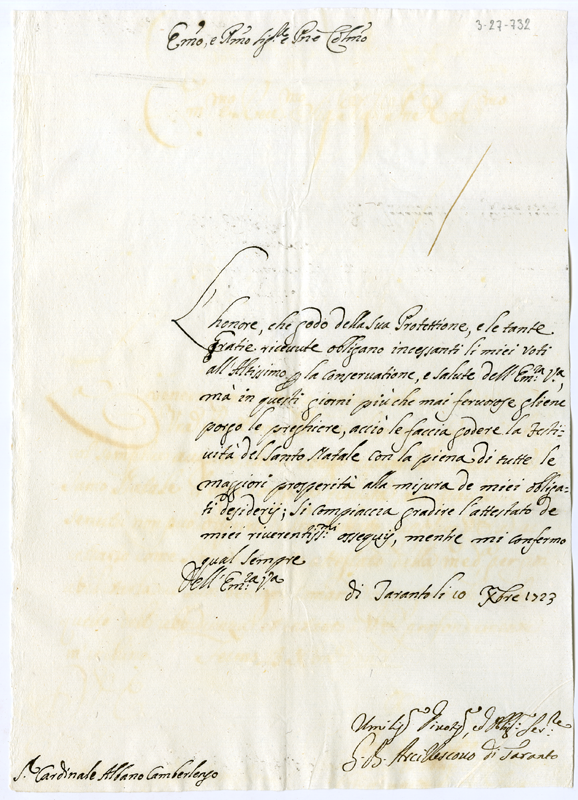 3-27-732
Em̃o, e Rm̃o Sig.re e Prñe Col̃mo
L'honore, che godo della Sua Protettione, e le tante
Gratie ricevute obligano incessanti li miei voti
all'Altissimo p la conservatione, e salute dell'Em.a V.a,
mà in questi giorni più che mai fervorose gliene
porgo le preghiere, acciò le faccia godere la Festi-
vità del Santo Natale con la piena di tutte le
maggiori prosperità alla misura de miei obliga-
ti desiderij; Si compiaccia gradire l'attestato de
miei riverentiss.mi ossequij, mentre mi confermo
qual sempre
Dell'Em.a V.a
di Taranto li 10 Xbre 1723
Umiliss.o Divotiss.o, ed Obl.mo Ser.re
G. B. Arcivescovo di Taranto
S.r Cardinale Albano Camberlengo